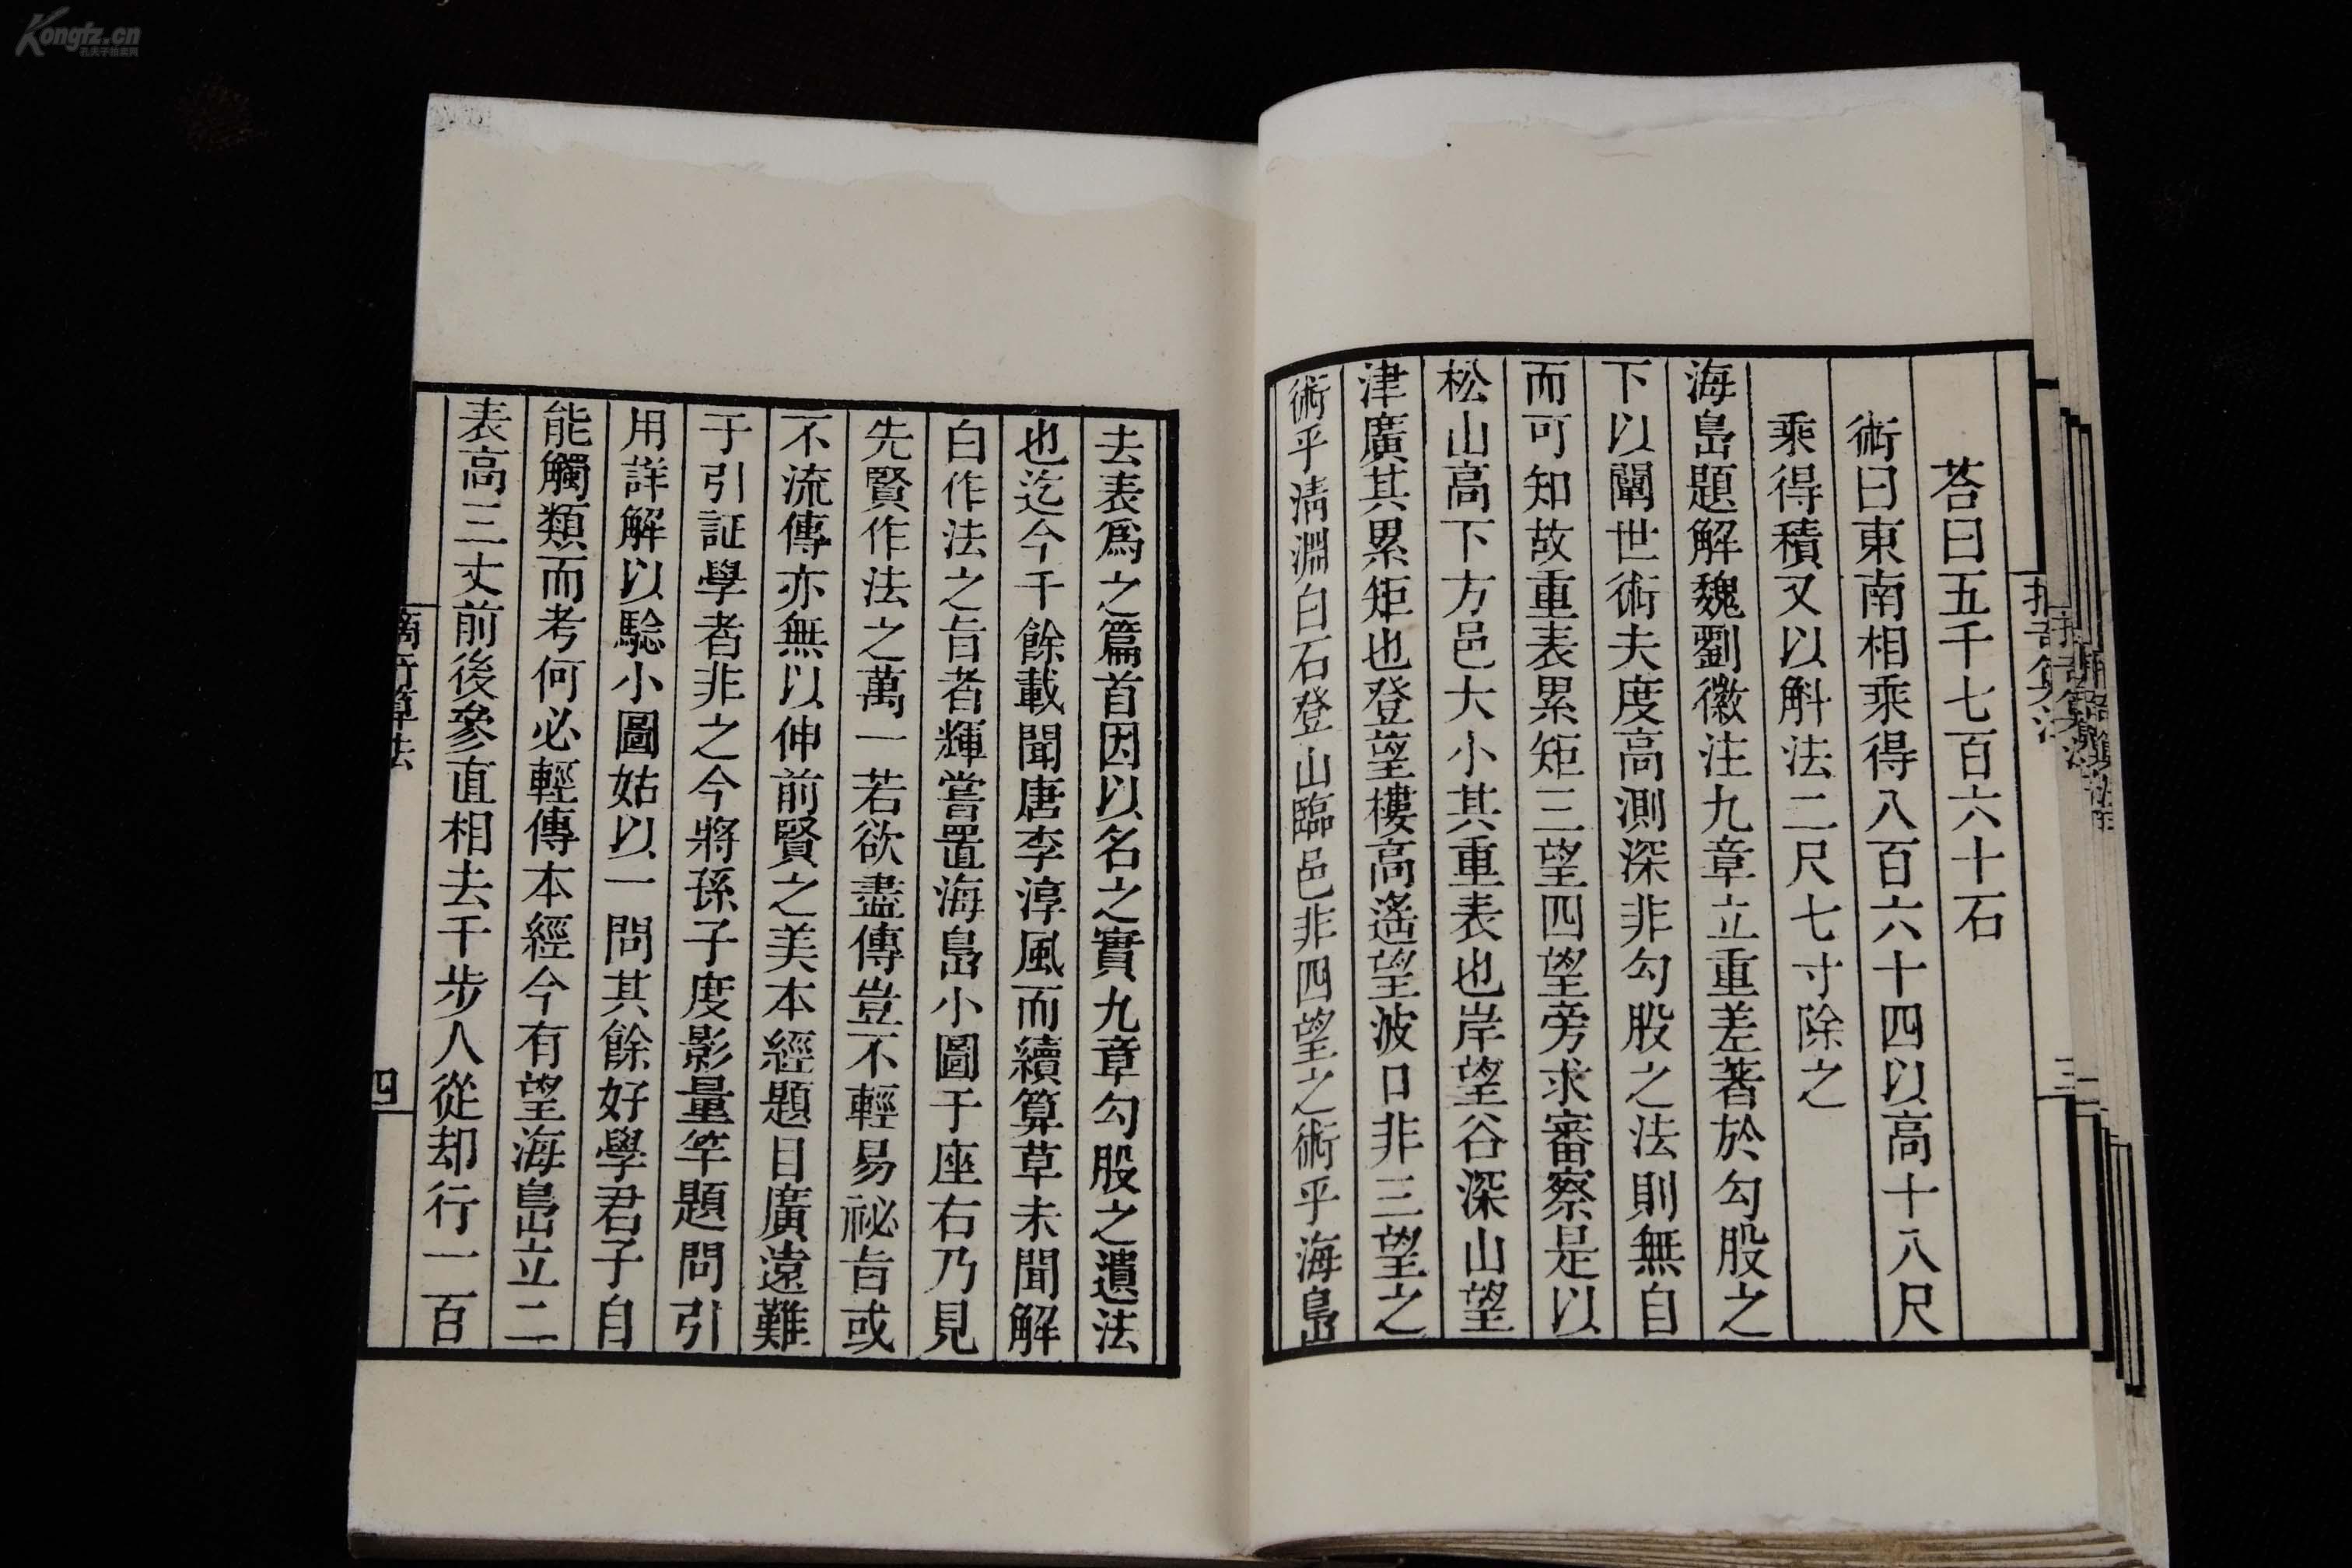 Kongfz.cn
孔夫子拍卖网
荅曰五千七百六十石
術曰東南相乘得八百六十四以高十八尺
乘得積又以斛法二尺七寸除之
海島題解魏劉徽注九章立重差著於勾股之
下以闡世術夫度高測深非勾股之法則無自
而可知故重表累矩三望四望旁求審察是以
松山高下方邑大小其重表也岸望谷深山望
津廣其累矩也登望樓高遙望波口非三望之
術乎清淵白石登山臨邑非四望之術乎海島
去表爲之篇首因以名之實九章勾股之遺法
也迄今千餘載聞唐李淳風而續算草未聞解
白作法之旨者輝嘗置海島小圖于座右乃見
先賢作法之萬一若欲盡傳豈不輕易祕旨或
不流傳亦無以伸前賢之美本經題目廣遠難
于引証學者非之今將孫子度影量竿題問引
用詳解以騐小圖姑以一問其餘好學君子自
能觸類而考何必輕傳本經今有望海島立二
表高三丈前後參直相去千步人從却行一百
四